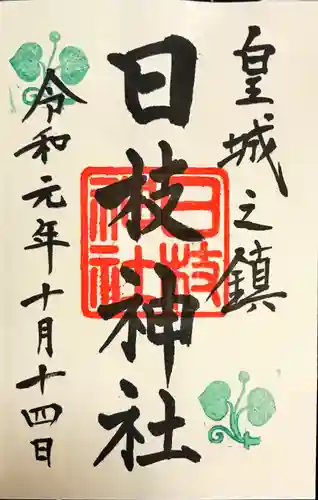 皇城之鎮
日枝神社
日枝
神社
令和元年十月十四日